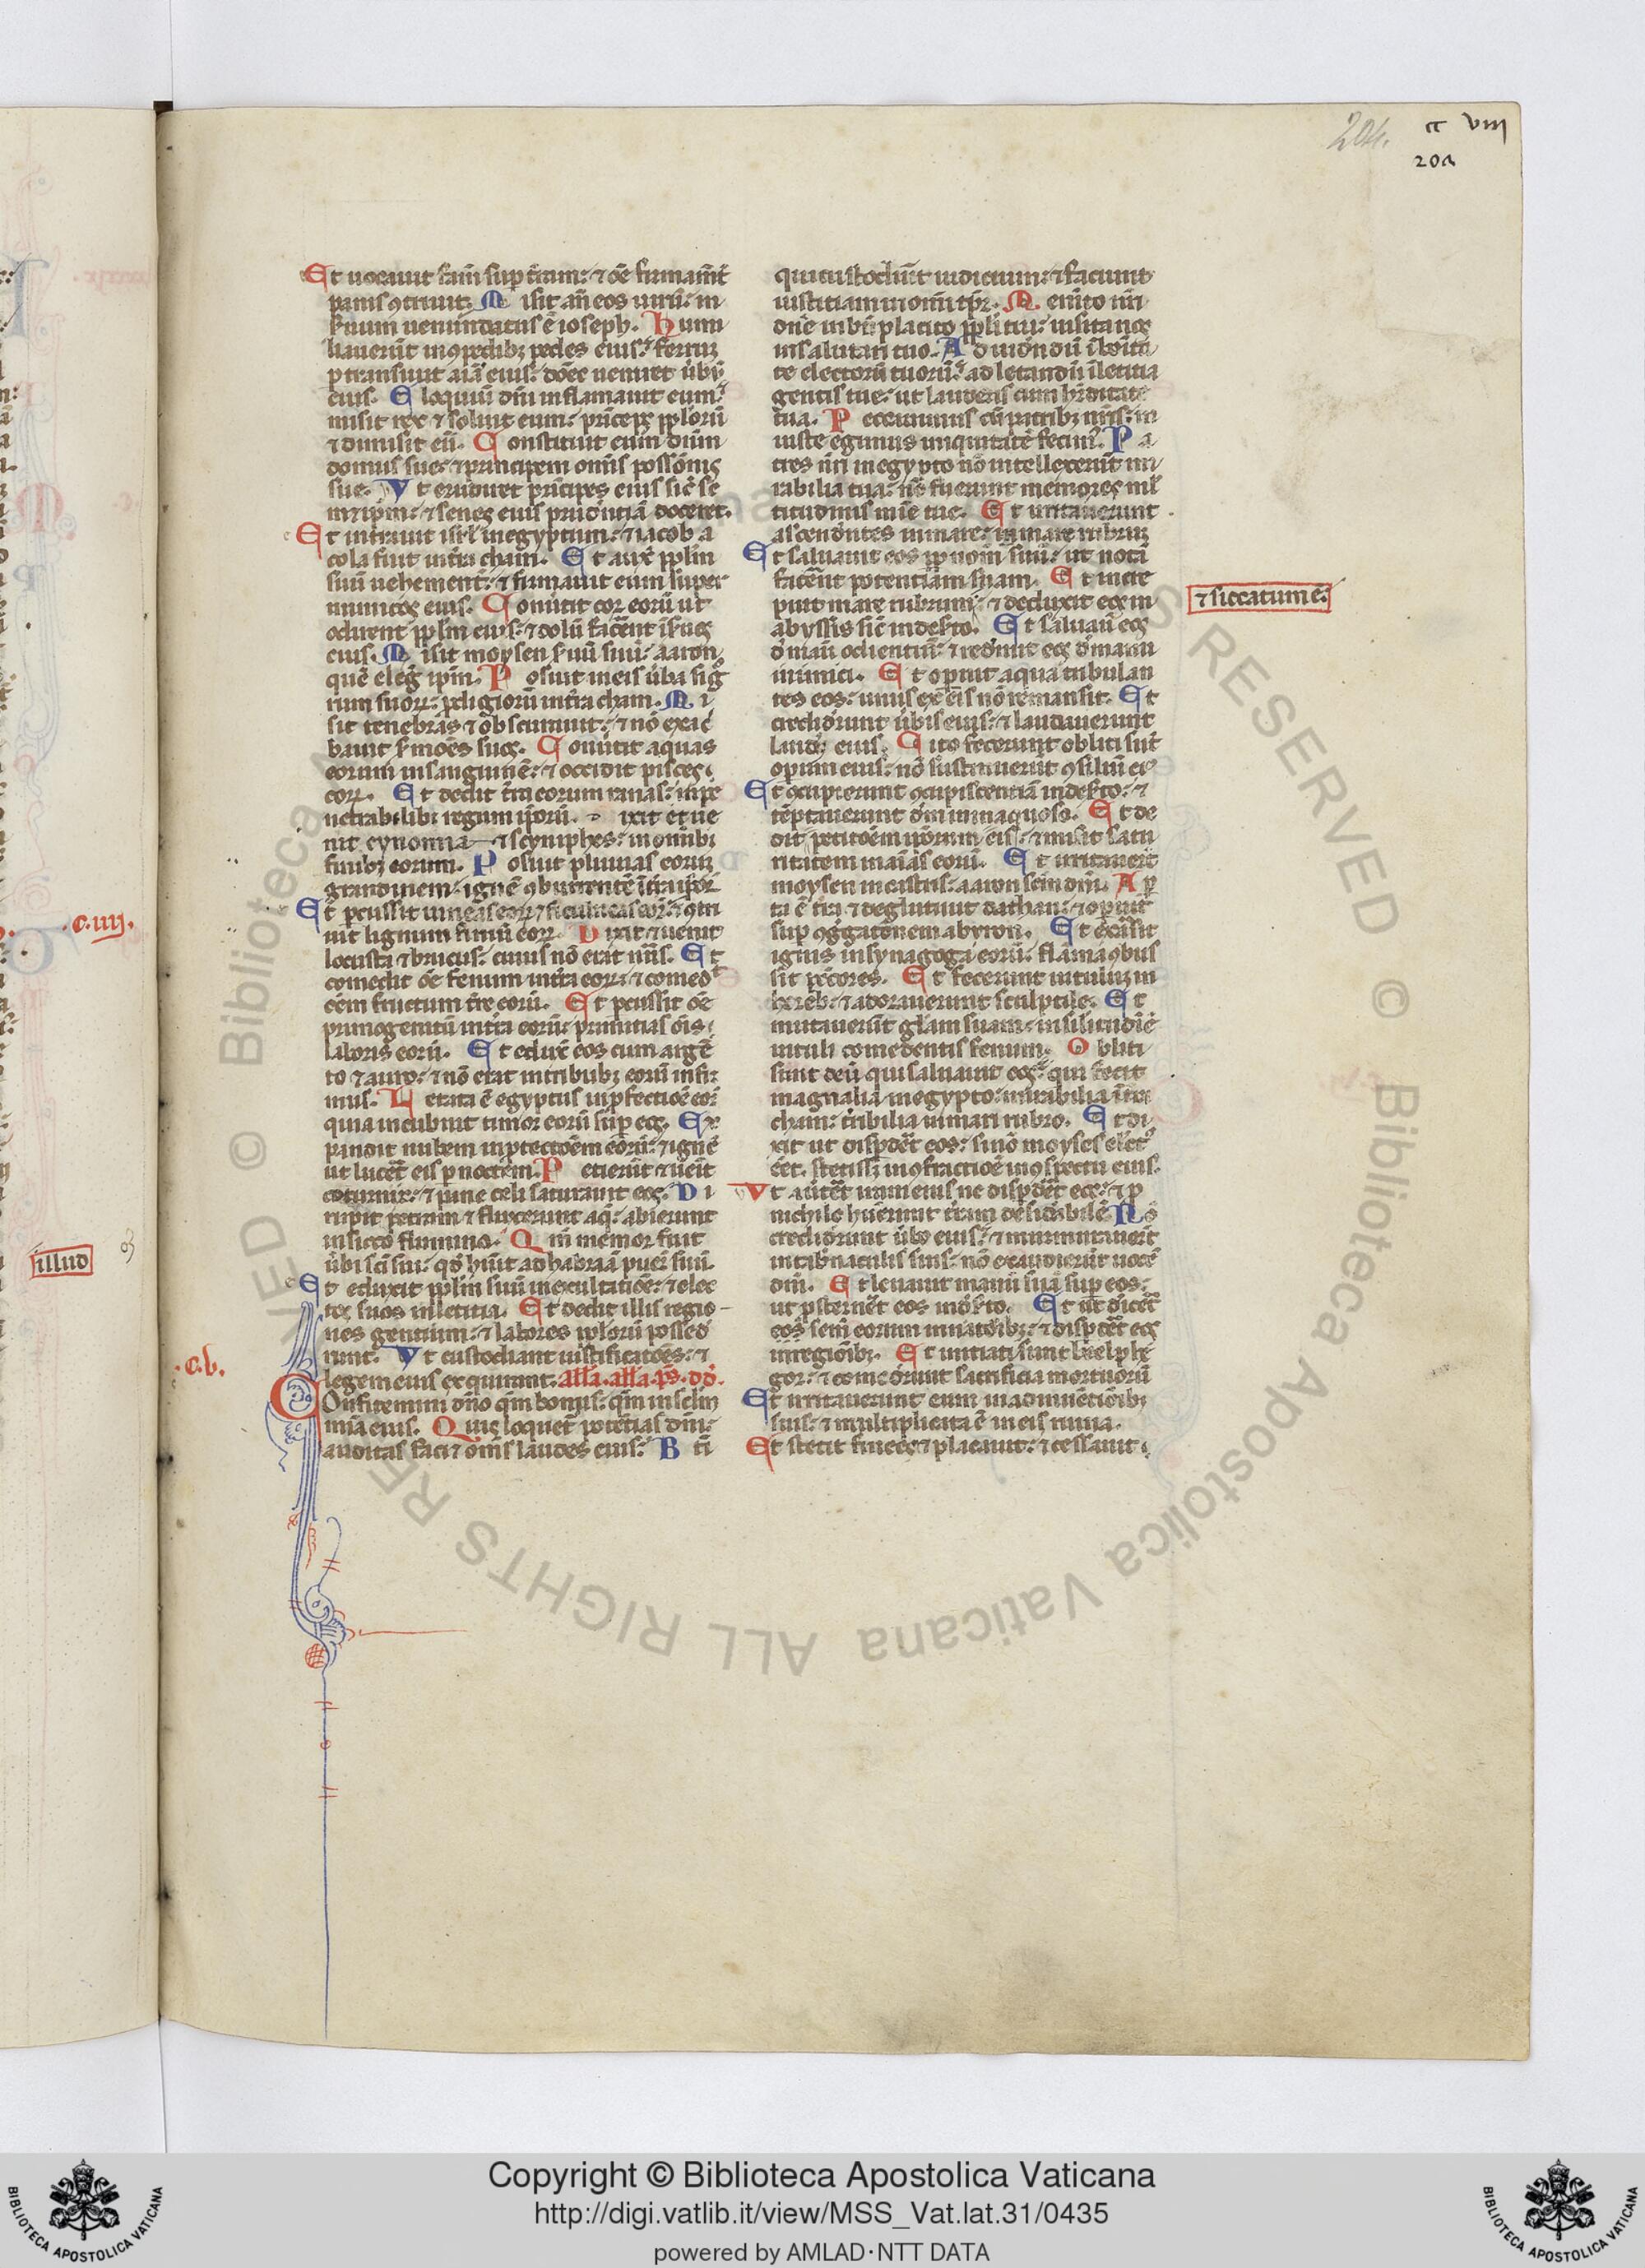 204.
cc viii
20a
Et uocauit famē sup terram: ⁊ oē firmamēt
panis ꝯtriuit. Misit añ eos uirū: in
seruum uenundatus ē ioseph. Humi
liauerūt in ꝯpedibꝫ pedes eius: ferruꝫ
ptransiuit aiā eius: donec ueniret ūbū
eius. Eloquiū dñi inflamauit eum:
misit rex ⁊ soluit eum: princeps pplorū
⁊ dimisit eū. Constituit eum dūm
domus sue: ⁊ principem omīs possōnis
sue. Vt erudiret principes eius sic̄ se
met ipm: ⁊ senes eius prudentiā doceret.
Et intrauit isrl in egyptum: ⁊ iacob a
cola fuit in terra cham. Et auxit pplm
suū uehement: ⁊ firmauit eum super
inimicos eius. Conuertit cor eorū ut
odirent pplm eius: ⁊ dolū facerent ī seruos
eius. Misit moysen seruū suū: aaron
quē elegit ipm. Posuit in eis ūba sig
rum suorꝫ: ⁊ prodigiorū in terra cham. Mi
sit tenebras ⁊ obscurauit: ⁊ nō exac
bauit sermōes suos. Conuertit aquas
eorum in sanguinē: ⁊ occidit pisces
eorꝫ. Et dedit terra eorum ranas: in pe
netrabilibꝫ regum ipsorū. Dixit et ue
nit cynomia ⁊ scyniphes: in omnibꝫ
finibꝫ eorum. Posuit pluuias eoruꝫ
grandinem: ignē ꝯburentē ī terra ipsoꝫ
Et pcussit uineas eorꝫ ⁊ ficulneas eorꝫ: ⁊ ꝯtri
uit lignum finiū eorꝫ. Dixit ⁊ uenit
locusta ⁊ brucus: cuius nō erat nūs. Et
comedit oē fenum in terra eorꝫ: ⁊ comedit
oēm fructum terre eorū. Et pcussit oē
primogenitū in terra eorū: primitias oīs
laboris eorū. Et eduxit eos cum argē
to ⁊ auro: ⁊ nō erat in tribubꝫ eorū infir
mus. Letata ē egyptus in pfectiōe eoꝫ
quia incubuit timor eorū sup eos. Ex
pandit nubem in ptectōem eorū: ⁊ ignē
ut lucet eis p noctem. Petierūt ⁊ uēit
coturnix: ⁊ pane celi saturauit eos. Di
rupit petram ⁊ fluxerunt aq̄: abierunt
in sicco flumina. Qm memor fuit
ūbi sci sui: qd hūit ad habraā puerū suū.
Et eduxit pplm suū in exultatiōe: ⁊ elec
tos suos in letitia. Et dedit illis regio
nes gentium: ⁊ labores pplorū possed
runt. Vt custodiant iustificatōes: ⁊
legem eius exquirant. alla. alla. ps. dd.
Confitemini dño qm bonus: qm in sclm
mīa eius. Quis loquet potētias dñi:
auditas faciet omīs laudes eius: Bti
c.b.
qui custodiūt iudicium: ⁊ faciunt
iustitiam in omi tpr. Memto nri
dñe in bn̄placito ppli tui: uisita nos
in salutari tuo. Ad uidendū ī bōita
te electorū tuorū: ad letandū ī letitia
gentis tue: ut lauderis cum hr̄ditate
tua. Peccauimus cū patribꝫ nr̄is: in
iuste egimus iniquitatē fecimꝰ. Pa
tres nr̄i in egypto nō intellexerūt mi
rabilia tua: nō fuerunt memores mul
titudinis mīe tue. Et irritauerunt
ascendentes in mare: in mare rubruꝫ
Et saluauit eos ppt nomen suū: ut notā
faceret potentiam suam. Et incre
puit mare rubrum: ⁊ deduxit eos in
⁊ siccatum ē:
abyssis sic̄ in deserto. Et saluauit eos
de manu odientiū: ⁊ redemit eos de manu
inimici. Et opuit aqua tribulan
tes eos: unus ex eis nō remansit. Et
crediderunt ūbis eius: ⁊ laudauerunt
laudē eius. Cito fecerunt obliti sunt
operum eius: nō sustinuerūt ꝯsiliū eiꝰ
Et ꝯcupierunt ꝯcupiscentiā in deserto: ⁊
temptauerunt dm in inaquoso. Et de
dit petitōem ipsorum eis: ⁊ misit satu
ritatem in aīas eorū. Et irritauerūt
moysen in castris: aaron scm dñi. Ap
ta ē terra ⁊ deglutiuit dathan: ⁊ opuit
sup ꝯggatōnem abyron. Et exarsit
ignis in synagoga eorū: flama ꝯbus
sit pctores. Et fecerunt uituluꝫ in
horeb: ⁊ adorauerunt sculptile. Et
mutauerūt gliam suam: in silitudīē
uituli comedentis fenum. Obliti
sunt deū qui saluauit eos: qui fecit
magnalia in egypto: mirabilia ī terra
cham: terribilia in mari rubro. Et di
xit ut disperdet eos: si nō moyses electꝰ
eiꝰ. stetisset in ꝯfractiōe in ꝯspectu eius.
Vt auertet iram eius ne disperdet eos: ⁊ p
nichilo huerunt terram desidabilē. Nō
crediderunt ūbo eius: ⁊ murmurauerūt
in tabernaculis suis: nō exaudierūt uocē
dñi. Et leuauit manū suā sup eos:
ut psterneret eos in deserto. Et ut diceret
eos semen eorum in natōibꝫ: ⁊ disperderet eos
in regiōibꝫ. Et initiati sunt beelphe
gor: ⁊ comederunt sacrificia mortuorū
Et irritauerunt eum in adinuētiōibꝫ
suis: ⁊ multiplicata ē in eis ruina.
Et stetit finees ⁊ placauit: ⁊ cessauit
c.iiij.
illud
Copyright © Biblioteca Apostolica Vaticana
http://digi.vatlib.it/view/MSS_Vat.lat.31/0435
powered by AMLAD·NTT DATA
BIBLIOTECA APOSTOLICA VATICANA
BIBLIOTECA APOSTOLICA VATICANA